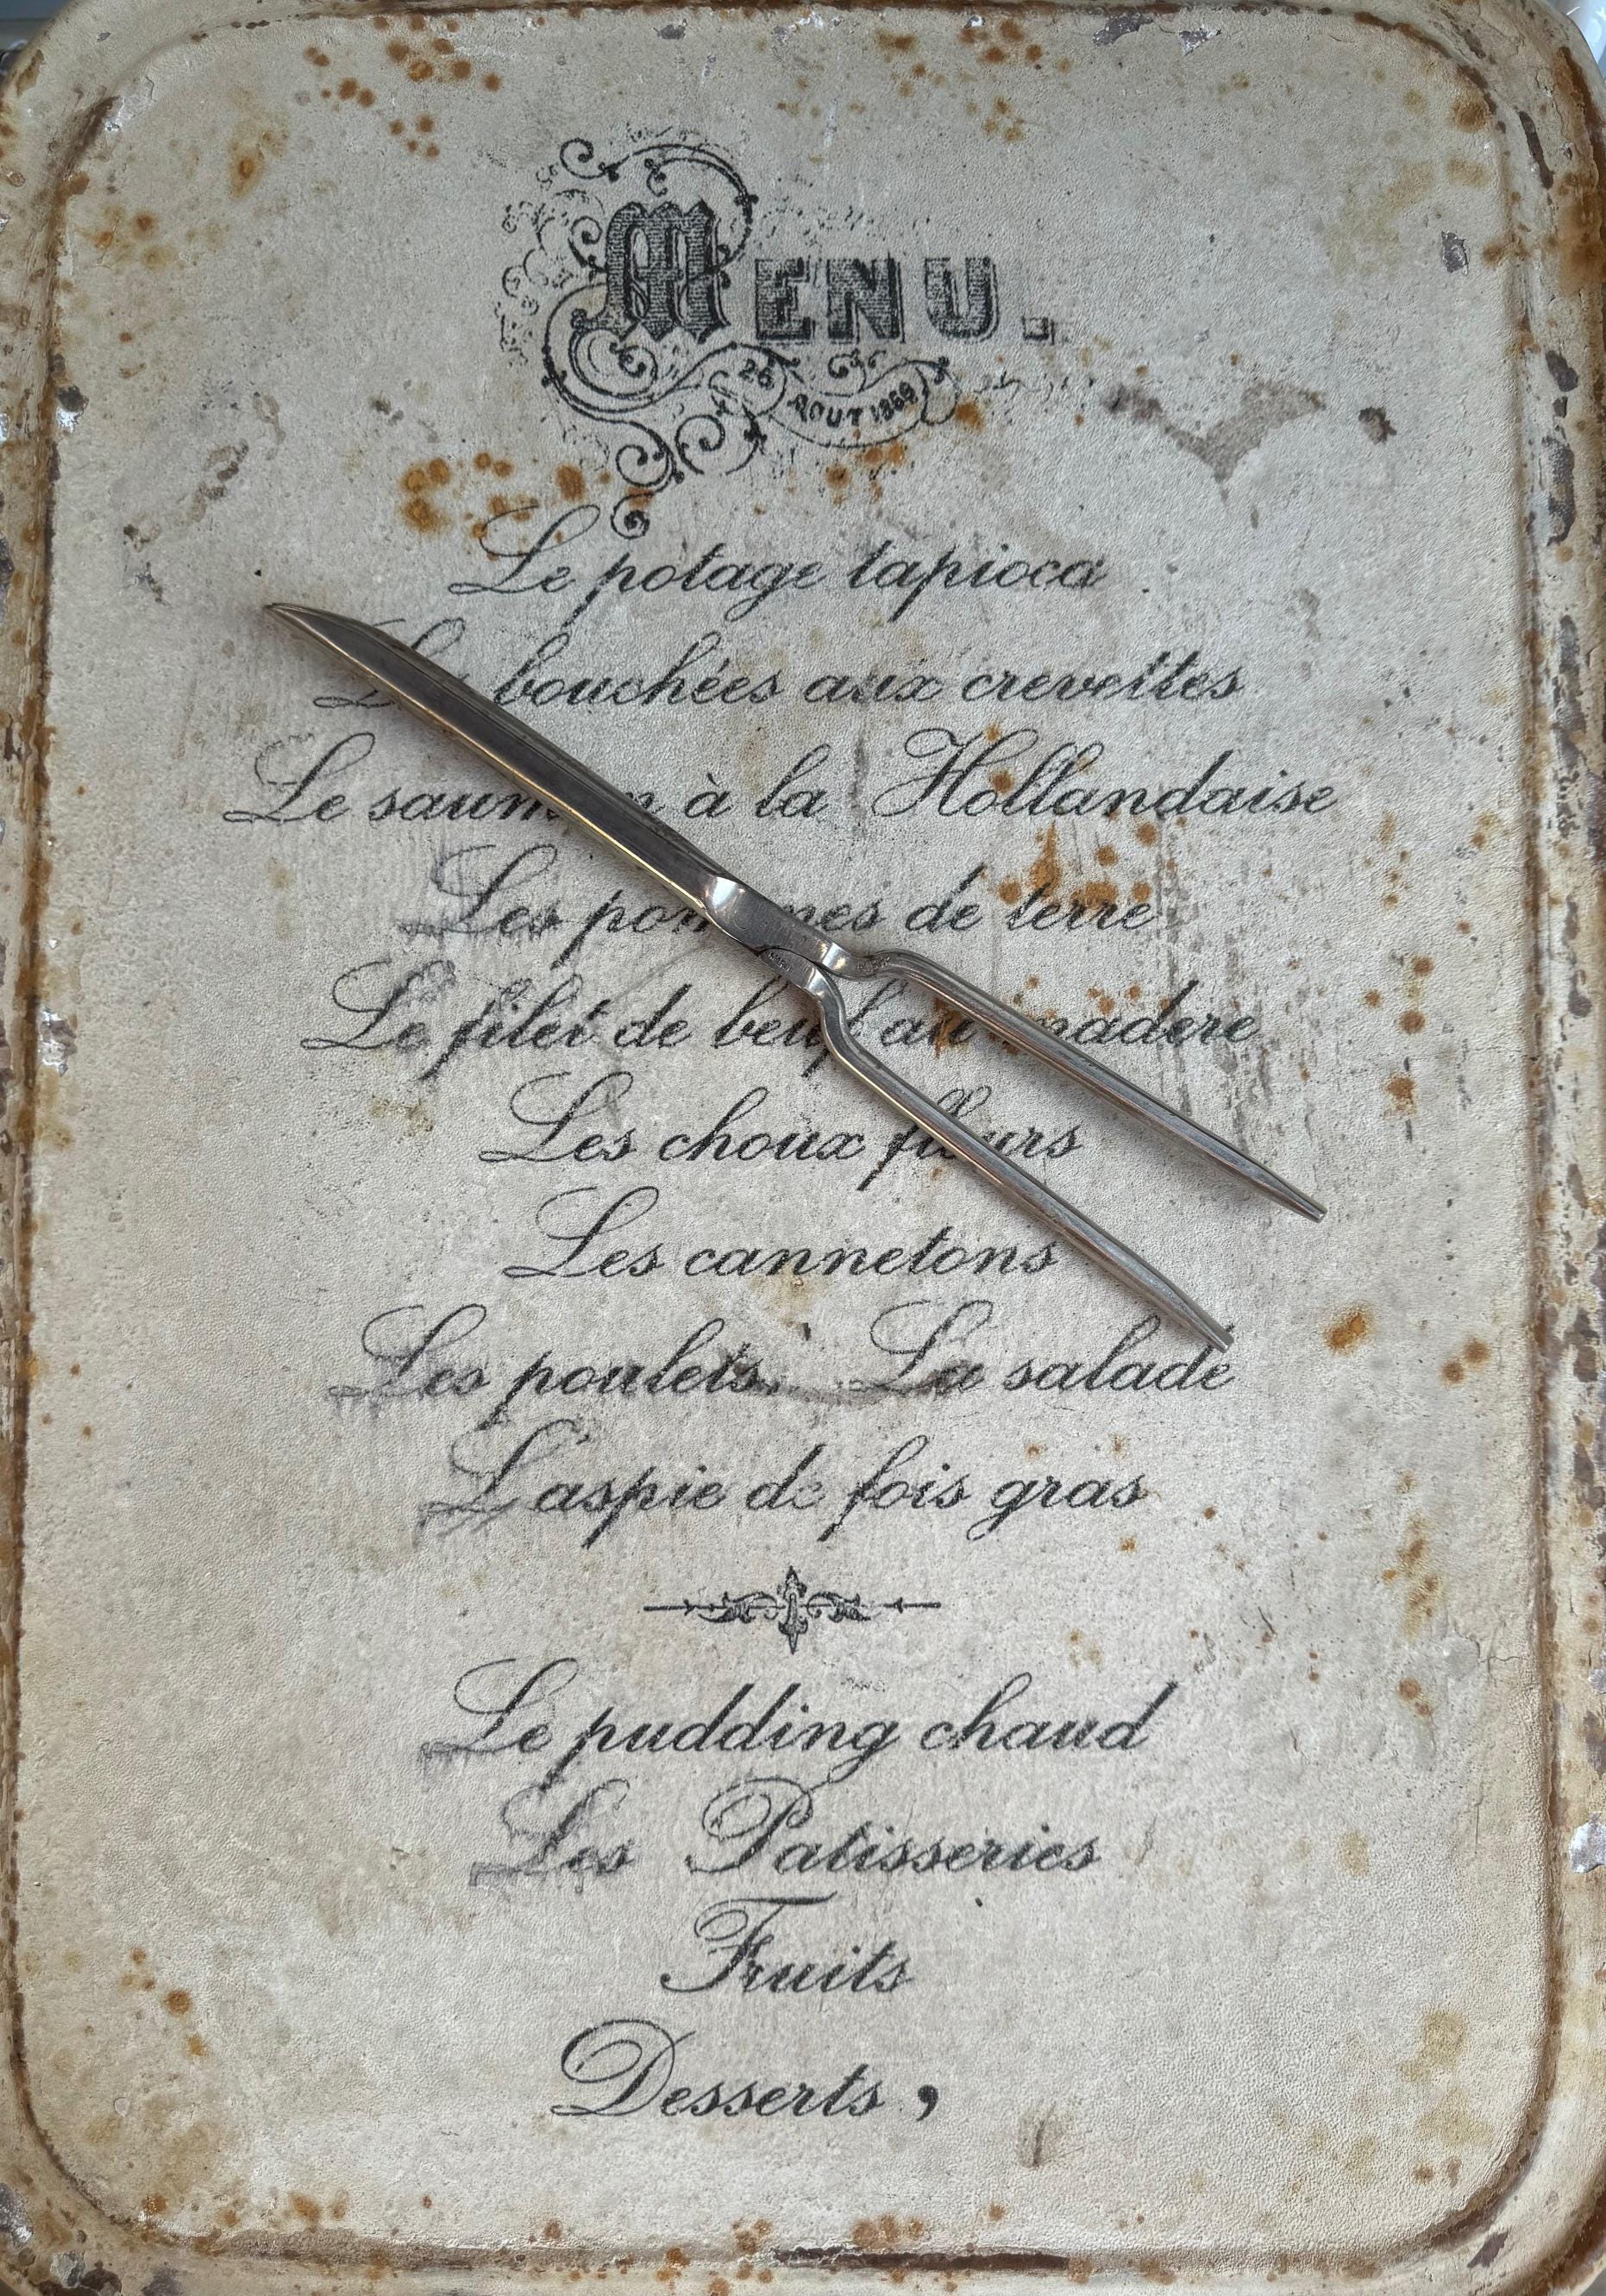 MENU.
26 AOUT 1869
Le potage tapioca
bouchées aux crevettes
Le saumon à la Hollandaise
Les pommes de terre
Le filet de beuf au madere
Les choux fleurs
Les cannetons
Les poulets. La salade
L'aspie de fois gras
Le pudding chaud
Les Patisseries
Fruits
Desserts,